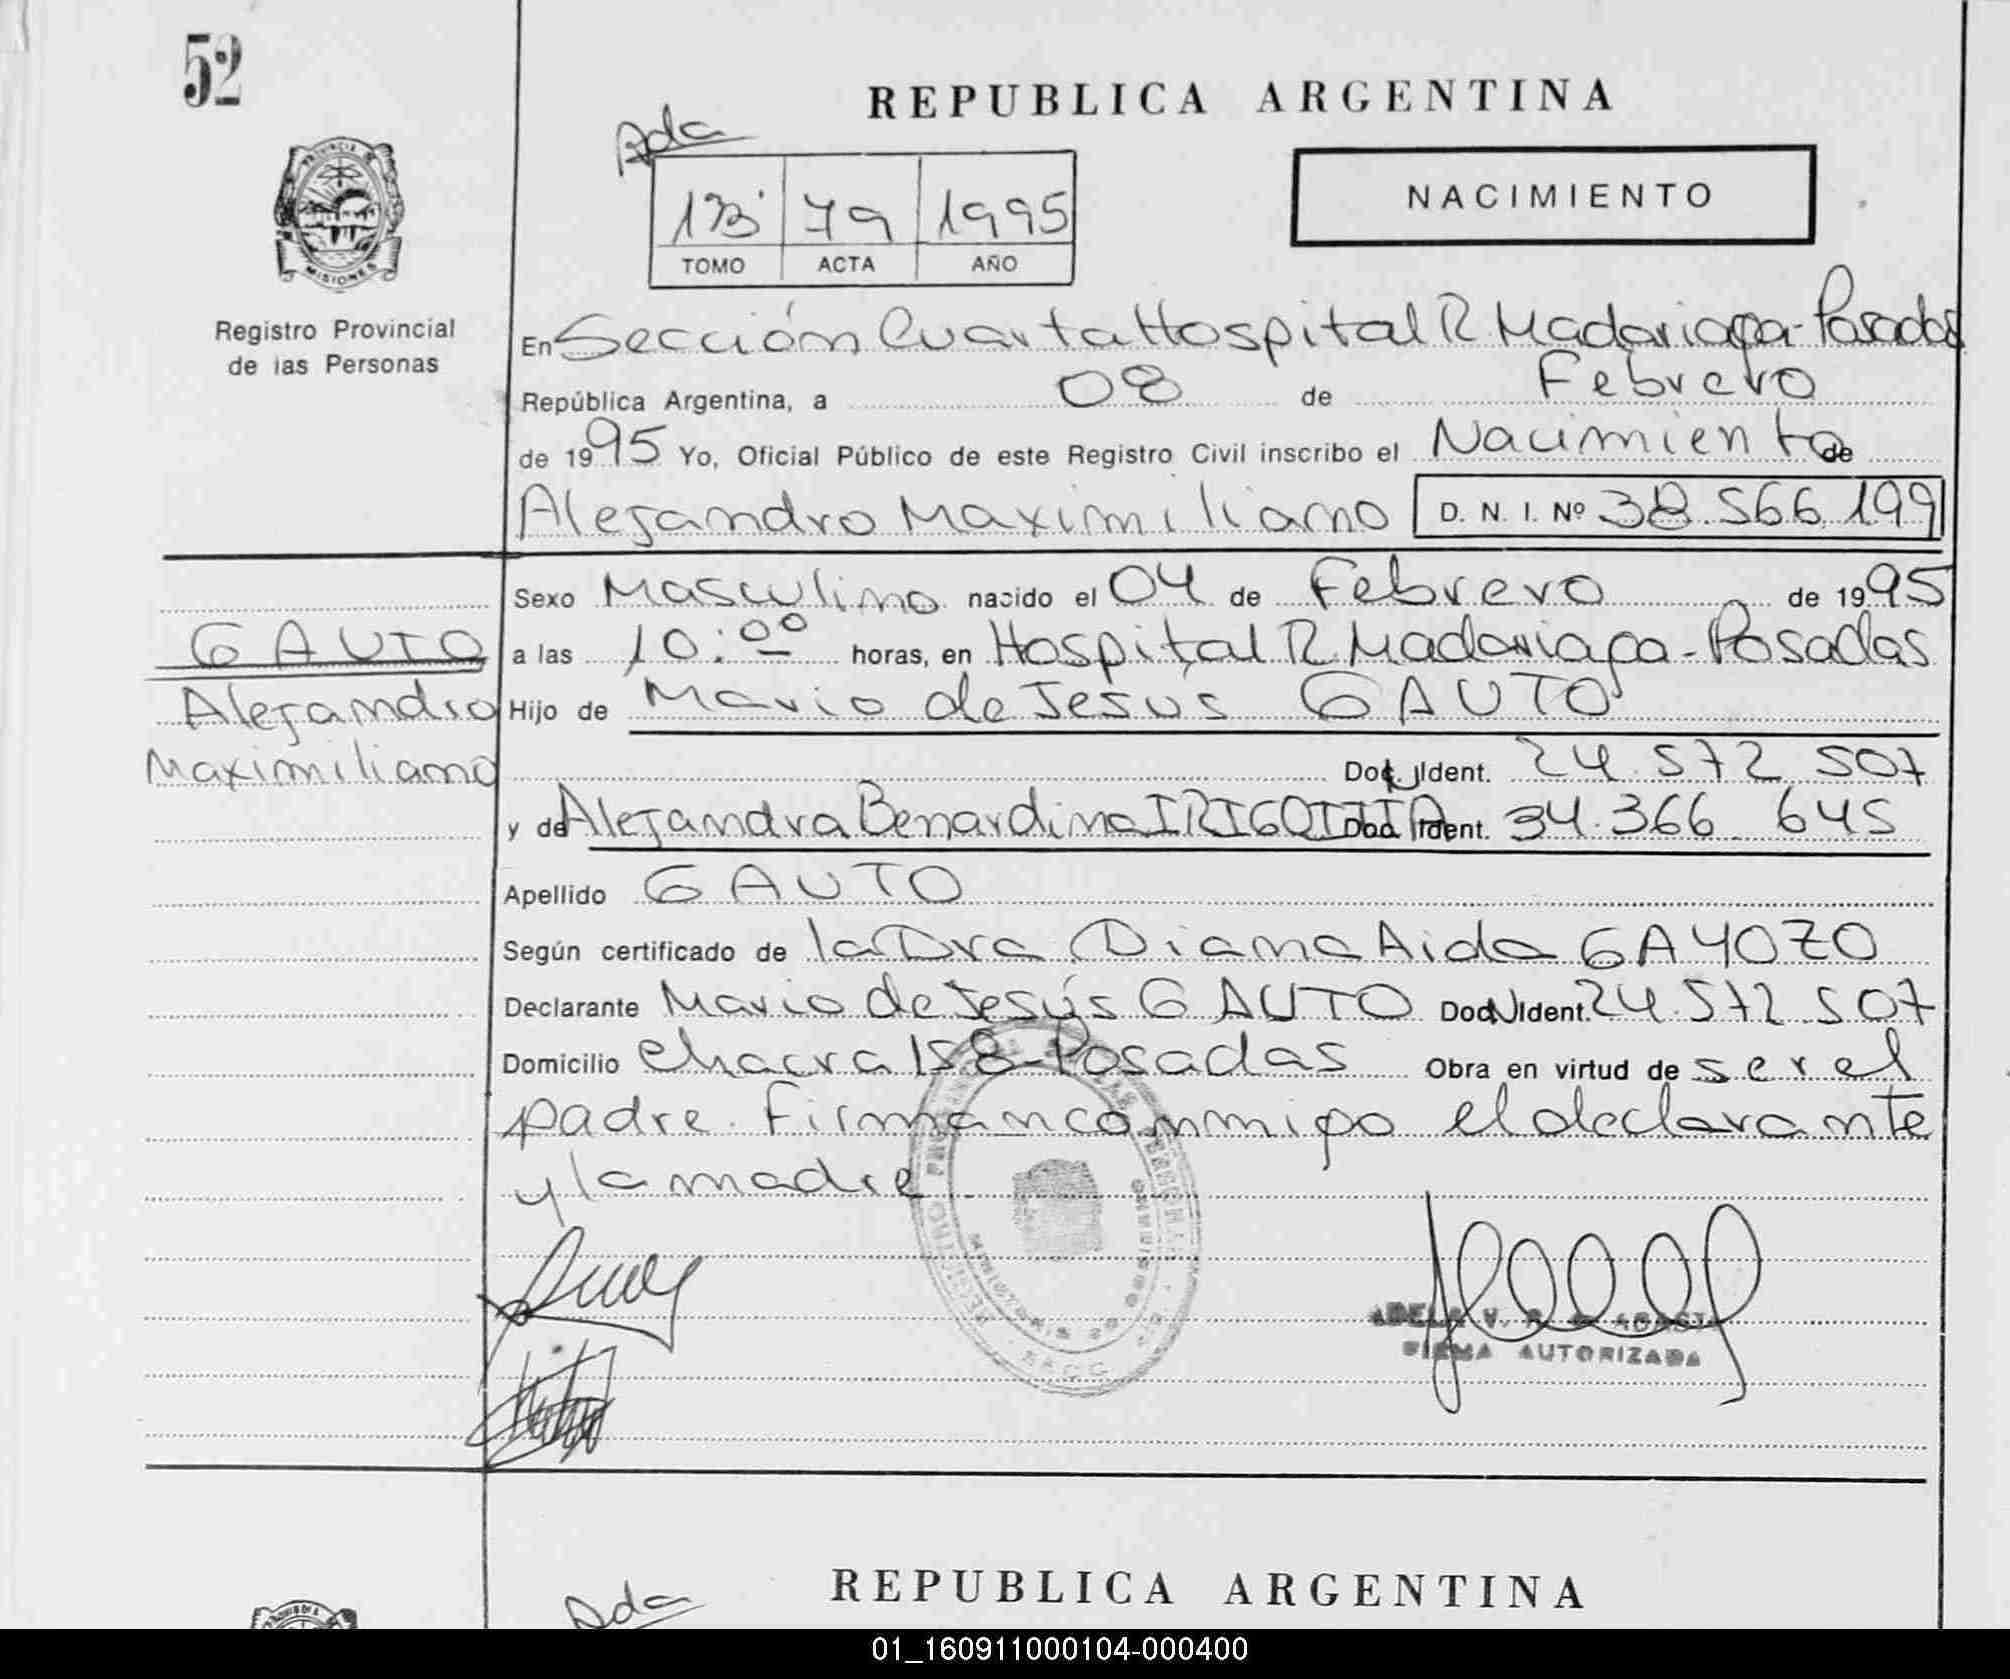 52
REPUBLICA ARGENTINA
Ada
NACIMIENTO
13 79 1995
TOMO ACTA AÑO
PROVINCIA DE
MISIONES
Registro Provincial
de las Personas
En Sección Cuarta Hospital R Madariaga - Posadas
República Argentina, a 08 de Febrero
de 1995 Yo, Oficial Público de este Registro Civil inscribo el Nacimiento de
Alejandro Maximiliano D. N. I. Nº 38.566.199
Sexo Masculino nacido el 04 de Febrero de 1995
GAUTO
a las 10:00 horas, en Hospital R. Madariaga - Posadas
Alejandro
Hijo de Mario de Jesus GAUTO
Maximiliano
Doc. Ident. 24.572.507
y de Alejandra Benardina Doc. Ident. 34.366.645
Apellido GAUTO
Según certificado de la Dra Diana Aida GAYOZO
Declarante Mario de Jesús GAUTO Doc. Ident. 24.572.507
Domicilio Chacra 158 - Posadas Obra en virtud de ser el
padre. Firman conmigo el declarante
y la madre
FIRMA AUTORIZADA
REPUBLICA ARGENTINA
Ada
01_160911000104-000400